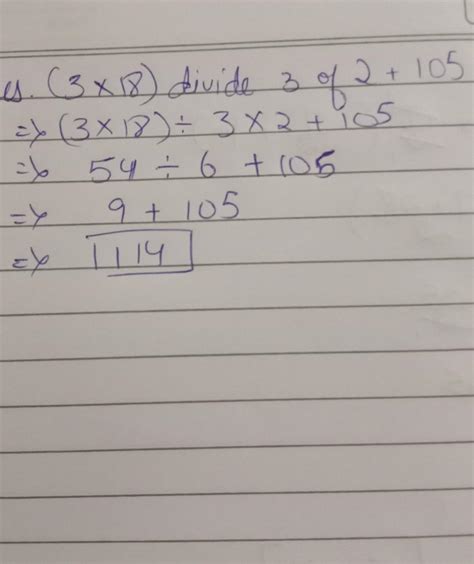 (3 × 18) divide 3 of 2 + 105
=> (3 × 18) ÷ 3 × 2 + 105
=> 54 ÷ 6 + 105
=> 9 + 105
=> 114